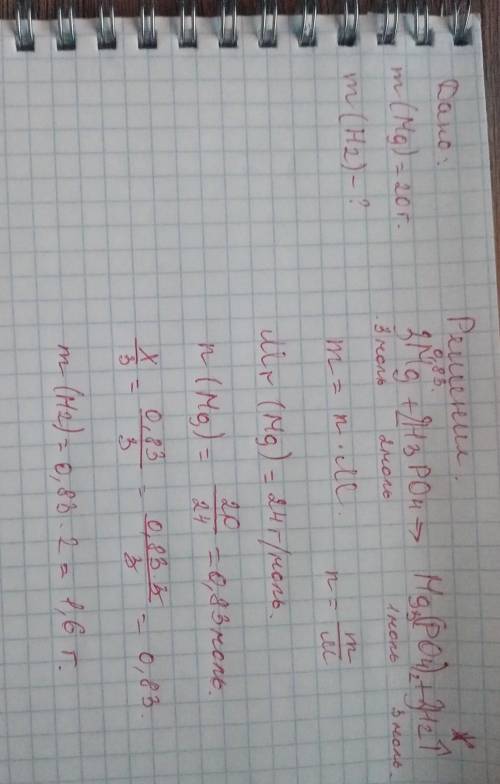 Дано:
m(Mg) = 20 г.
m(H2) - ?
Решение.
0,83. x
3Mg + 2H3PO4 → Mg3(PO4)2 + 3H2↑
3 моль 2 моль 1 моль 3 моль.
m = n · M. n = m/M
Mr(Mg) = 24 г/моль.
n(Mg) = 20/24 = 0,83 моль.
x/3 = 0,83/3 = 0,83·3/3 = 0,83.
m(H2) = 0,83 · 2 = 1,6 г.